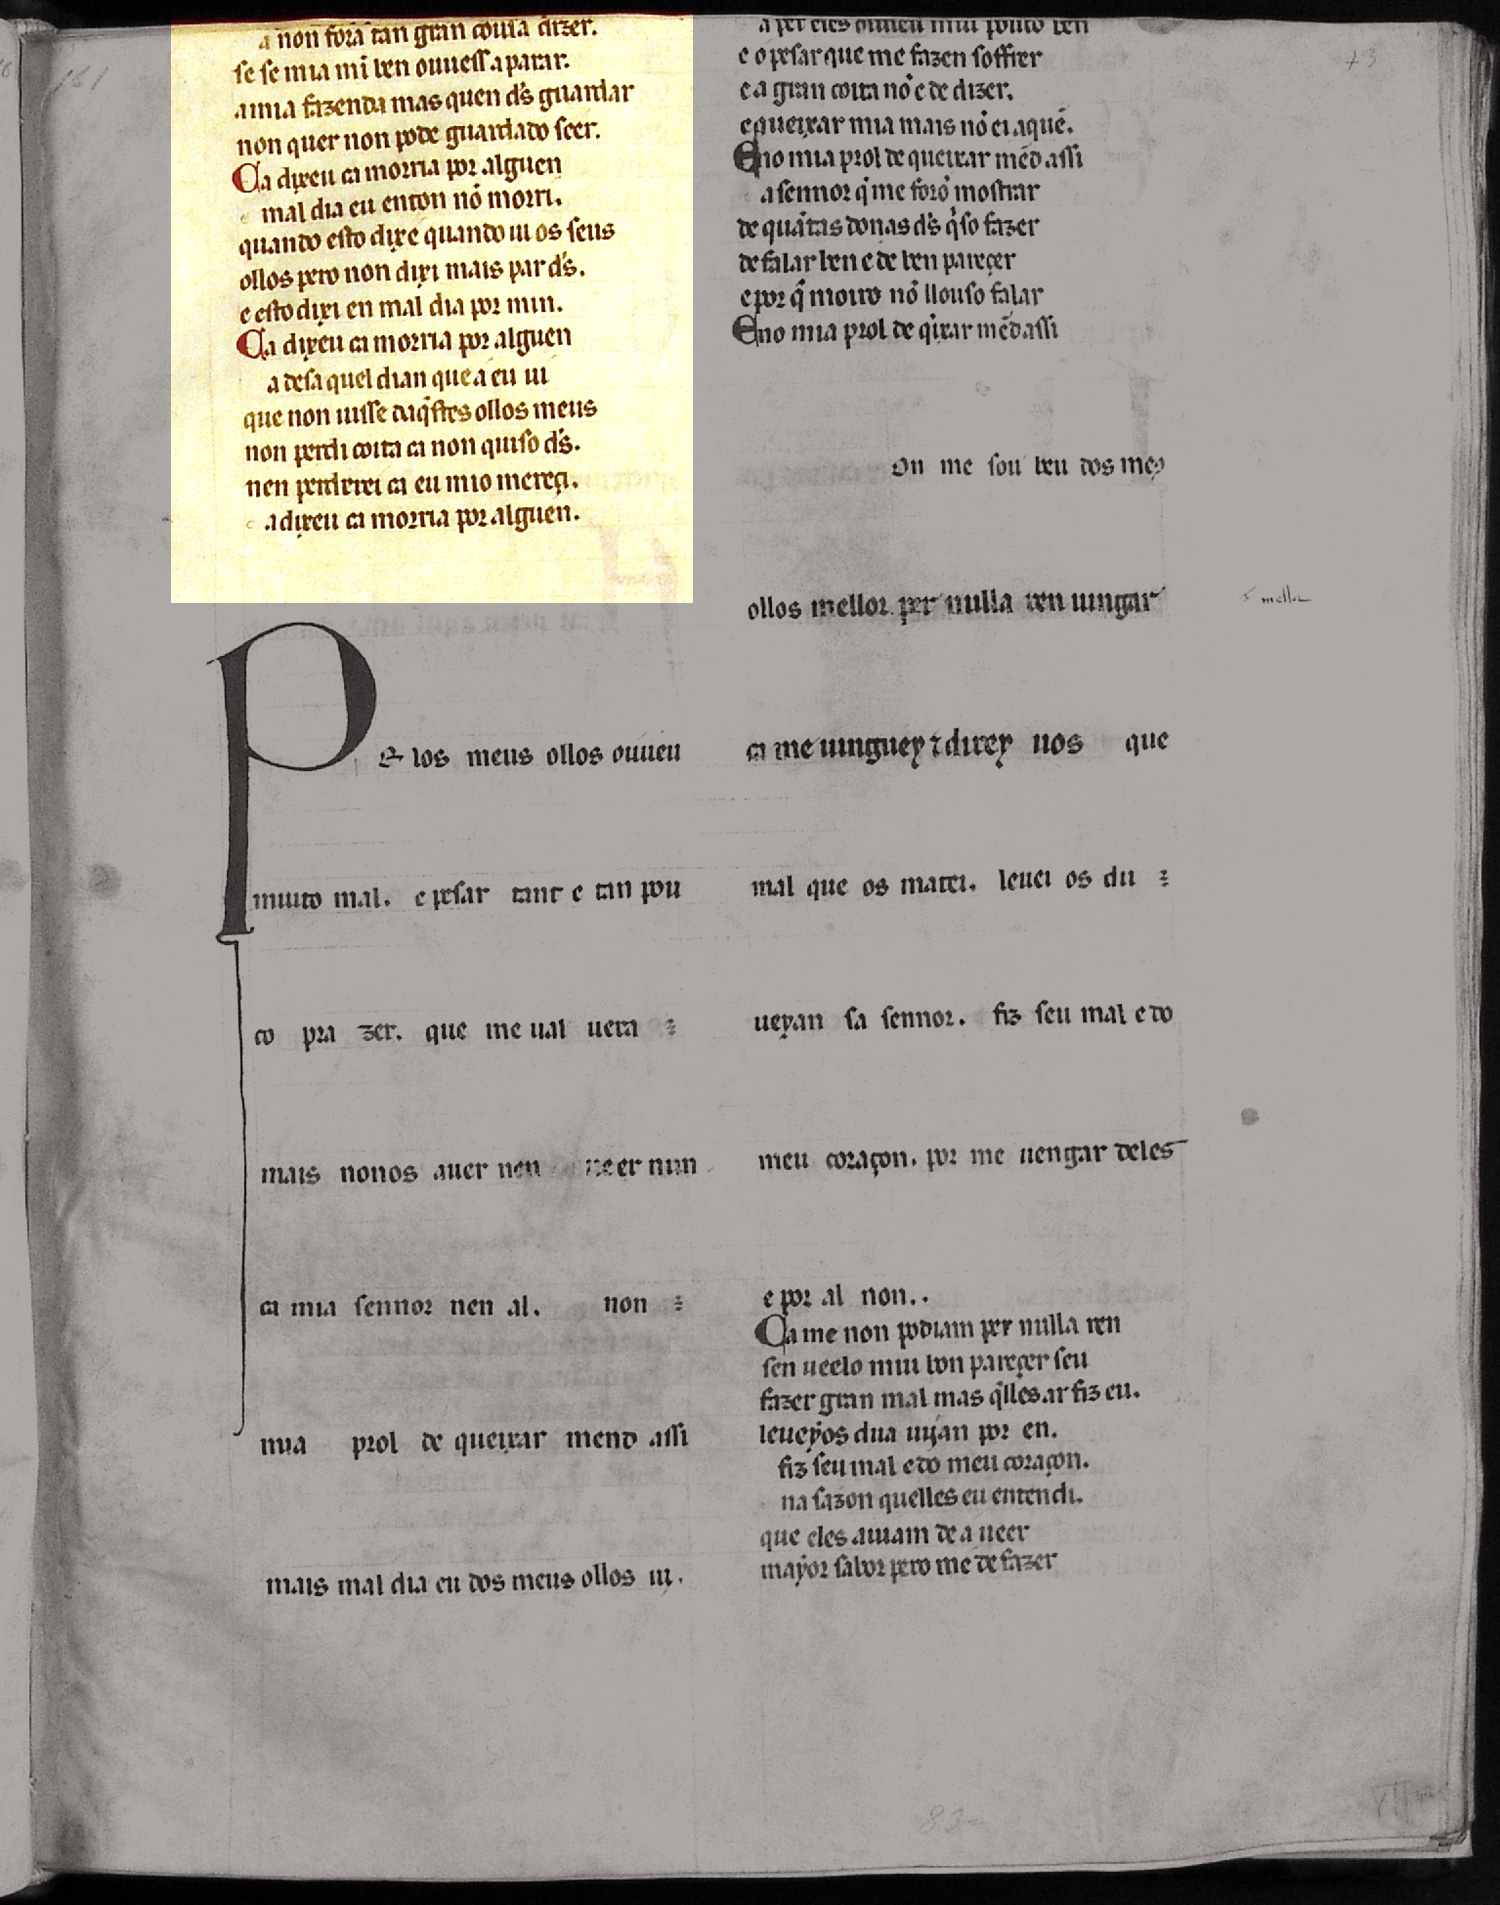 a non forã tan gran couta dizer.
se se mia mĩ ben ouuess a parar.
a mia fazenda mas quen d̃s guardar
non quer non pode guardado seer.
Ca dixeu ca morria por alguen
mal dia eu enton nõ morri.
quando esto dixe quando ui os seus
ollos pero non dixi mais par d̃s.
e esto dixi en mal dia por min.
Ca dixeu ca morria por alguen
a des aquel dian que a eu ui
que non uisse daq̃stes ollos meus
non perdi coita ca non quiso d̃s.
nen perderei ca eu mio mereçi.
c adixeu ca morria por alguen.
P
Er los meus ollos ouueu
muito mal. e pesar tant e tan pou
co pra zer. que me ual uera
mais nonos auer nen ueer nun
ca mia sennor nen al. non
mia prol de queixar mend assi
mais mal dia eu dos meus ollos ui.
a per eles ouueu mui pouco ben
e o pesar que me fazen soffrer
e a gran coita nõ e de dizer.
e queixar mia mais nõ ei aquẽ.
E no mia prol de queixar mẽd assi
a sennor q̃ me forõ mostrar
de quãtas donas d̃s q̃so fazer
de falar ben e de ben pareçer
e por q̃ moiro nõ llouso falar
E no mia prol de q̃ixar mẽdassi
on me sou beu dos meꝯ
ollos mellor per nulla ren uingar
ca me uinguey ⁊ direy uos que
mal que os matei. leuei os du
ueyan sa sennor. fiz seu mal e do
meu coraçon. por me uengar deles
e por al non..
Ca me non podiam per nulla ren
sen ueelo mui bon pareçer seu
fazer gran mal mas q̃lles ar fiz eu.
leueyos dua uijan por en.
fiz seu mal e do meu coraçon.
na sazon quelles eu entendi.
que eles auiam de a ueer
mayor sabor pero me de fazer